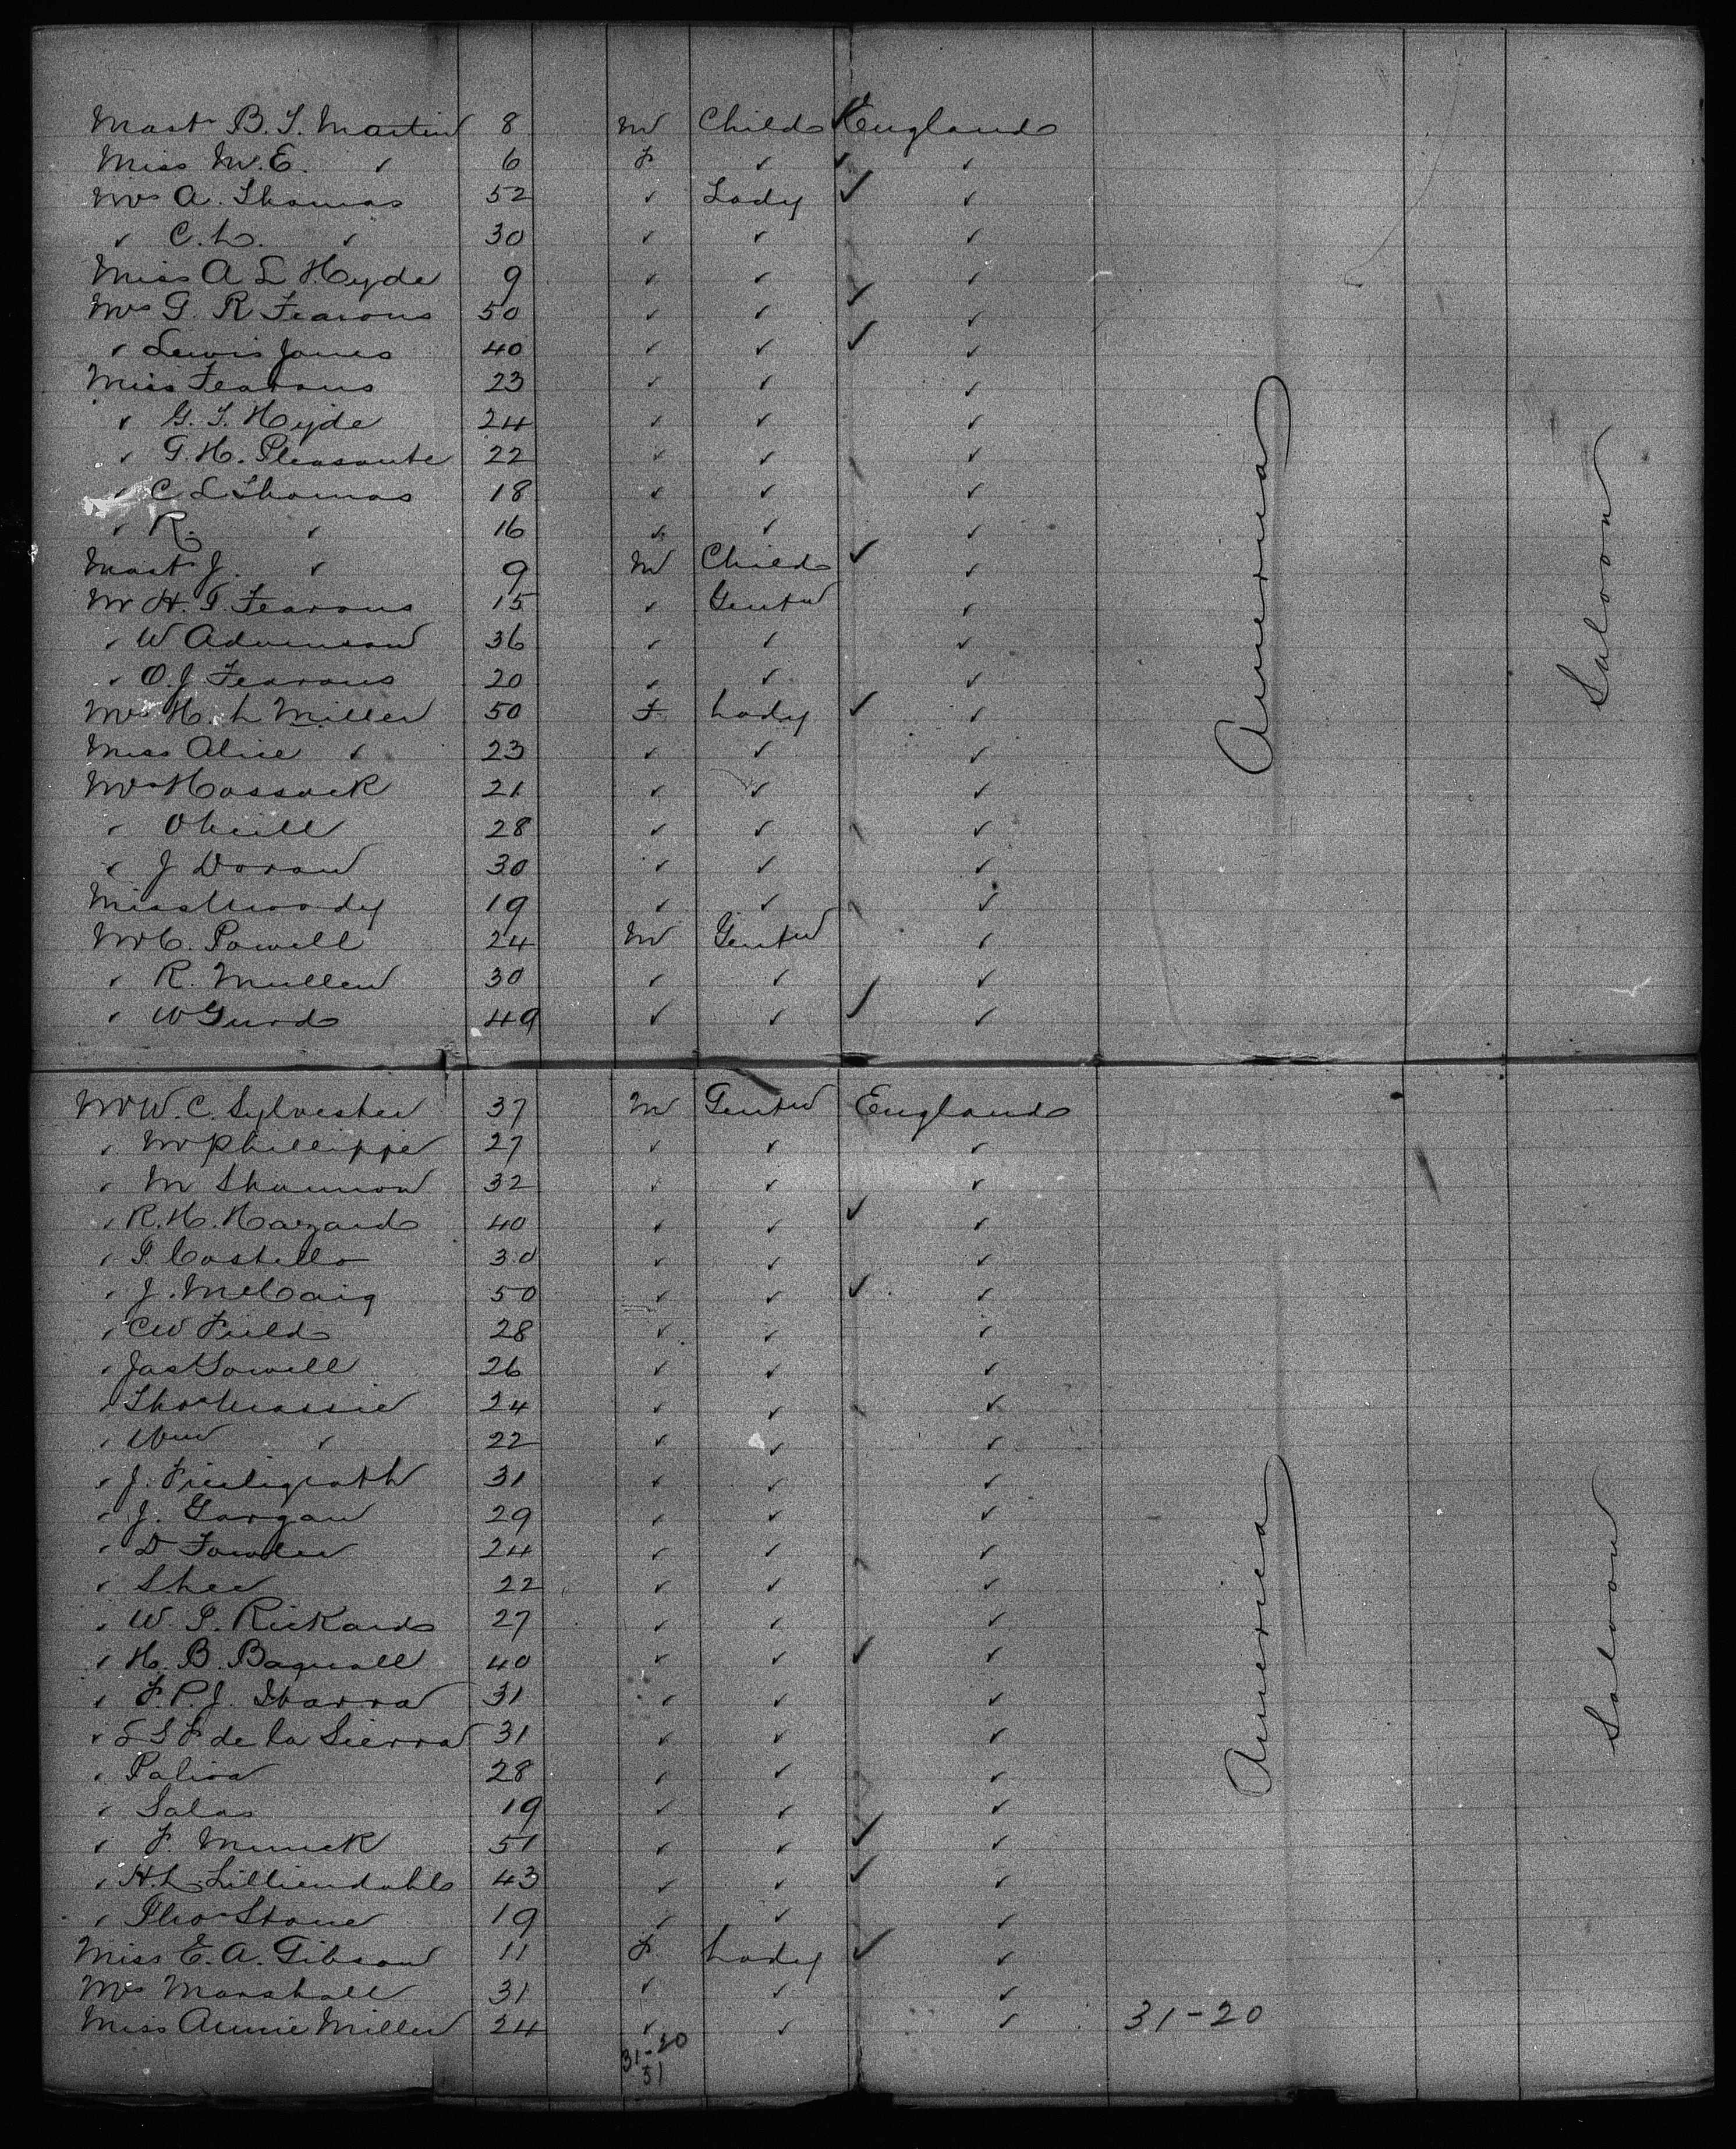 Mastr B. T. Martin 8 M Child England
Miss M. E. " 6 F " "
Mrs A. Thomas 52 " Lady "
" C. L. " 30 " " "
Miss A L Hyde 9 " " "
Mrs G. R Fearons 50 " " "
" Lewis Jones 40 " " "
Miss Fearons 23 " " "
" G. T. Hyde 24 " " "
" G. H. Pleasonte 22 " " "
" C L Thomas 18 " " "
" R. " 16 " " "
Mastr J. " 9 M Child "
Mr H. T. Fearons 15 " Gentn "
" W Adamson 36 " " "
" O. J. Fearons 20 " " "
Mrs H. L Miller 50 F Lady "
Miss Alice " 23 " " "
Mrs Hossack 21 " " "
" ONeill 28 " " "
" J Doran 30 " " "
Miss Moody 19 " " "
Mr C. Powell 24 M Gentn "
" R. Mullen 30 " " "
" W Gurd 49 " " "
America
Saloon
Mr W. C. Sylvester 37 M Gentn England
" Phillippe 27 " " "
" M Shannon 32 " " "
" R. H. Hazard 40 " " "
" P. Costello 30 " " "
" J. McCaig 50 " " "
" C W Field 28 " " "
" Jas Powell 26 " " "
" Thos Massie 24 " " "
" Wm " 22 " " "
" J. 31 " " "
" J. Gargan 29 " " "
" D Fowler 24 " " "
" Shee 22 " " "
" W. P. Rickards 27 " " "
" H. B. Bagnall 40 " " "
" F. P. J. Ibarra 31 " " "
" E S F de la Sierra 31 " " "
" 28 " " "
" Salas 19 " " "
" F. Munick 51 " " "
" H. L. Lilliendahl 43 " " "
" Thos Stone 19 " " "
Miss E. A. Gibson 11 F Lady "
Mrs Marshall 31 " " "
Miss Annie Miller 24 " " " 31-20
31-20
51
America
Saloon